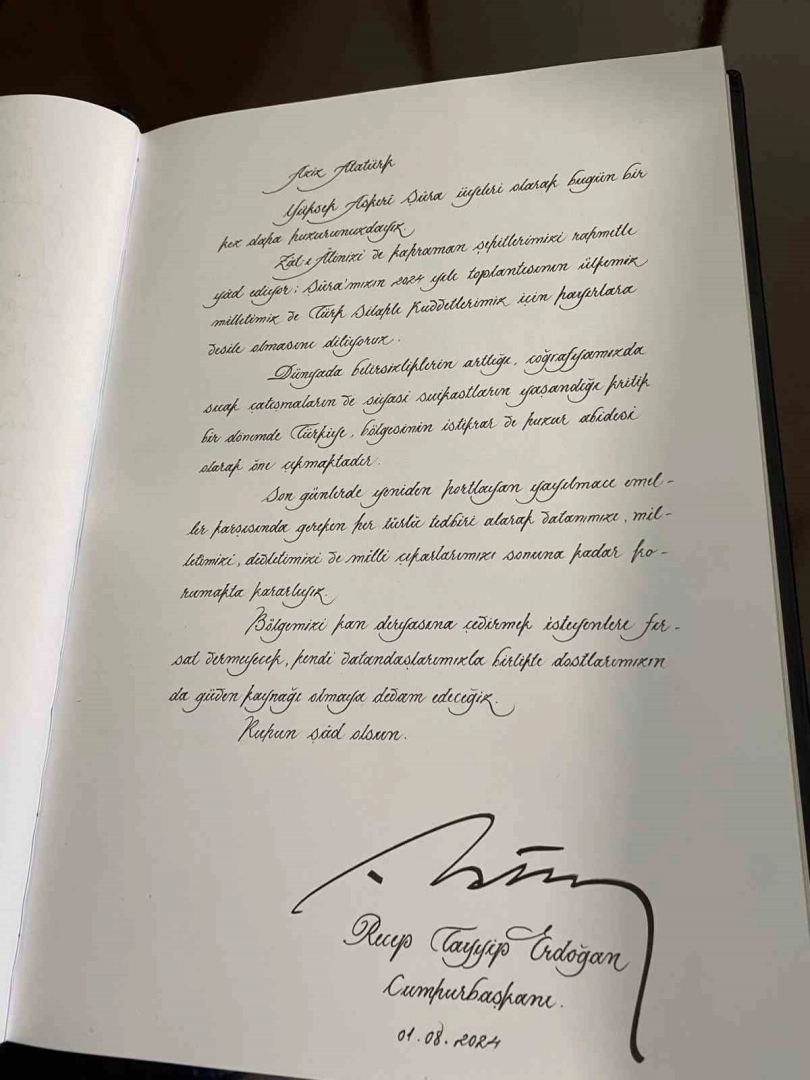 Aziz Atatürk
Yüksek Askeri Şûra üyeleri olarak bugün bir
kez daha huzurunuzdayız.
Zât-ı Âlinizi ve kahraman şehitlerimizi rahmetle
yâd ediyor; Şûra'mızın 2024 yılı toplantısının ülkemiz
milletimiz ve Türk Silahlı Kuvvetlerimiz için hayırlara
vesile olmasını diliyoruz.
Dünyada belirsizliklerin arttığı, coğrafyamızda
sıcak çatışmaların ve siyasi suikastların yaşandığı kritik
bir dönemde Türkiye, bölgesinin istikrar ve huzur abidesi
olarak öne çıkmaktadır.
Son günlerde yeniden hortlayan yayılmacı emel-
ler karşısında gereken her türlü tedbiri alarak vatanımızı, mil-
letimizi, devletimizi ve milli çıkarlarımızı sonuna kadar ko-
rumakta kararlıyız.
Bölgemizi kan deryasına çevirmek isteyenlere fır-
sat vermeyecek, kendi vatandaşlarımızla birlikte dostlarımızın
da güven kaynağı olmaya devam edeceğiz.
Ruhun şâd olsun.
Recep Tayyip Erdoğan
Cumhurbaşkanı.
01.08.2024